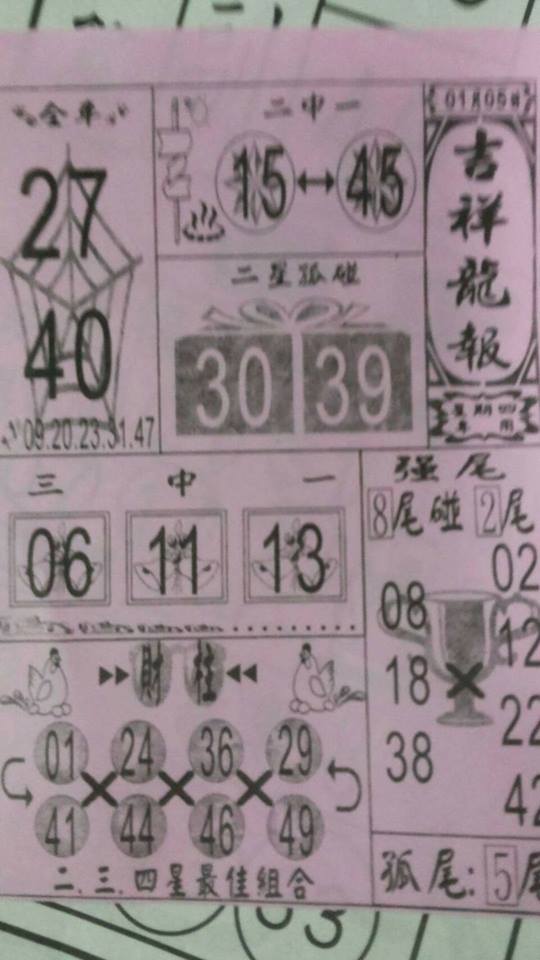 全車
27
40
09.20.23.31.47
二中一
15 45
二星孤碰
30 39
01月05日
吉祥龍報
星期四
三中一
06 11 13
强尾
8尾碰2尾
08
18
38
02
12
22
42
財柱
01 24 36 29
41 44 46 49
二.三.四星最佳組合
孤尾:5尾